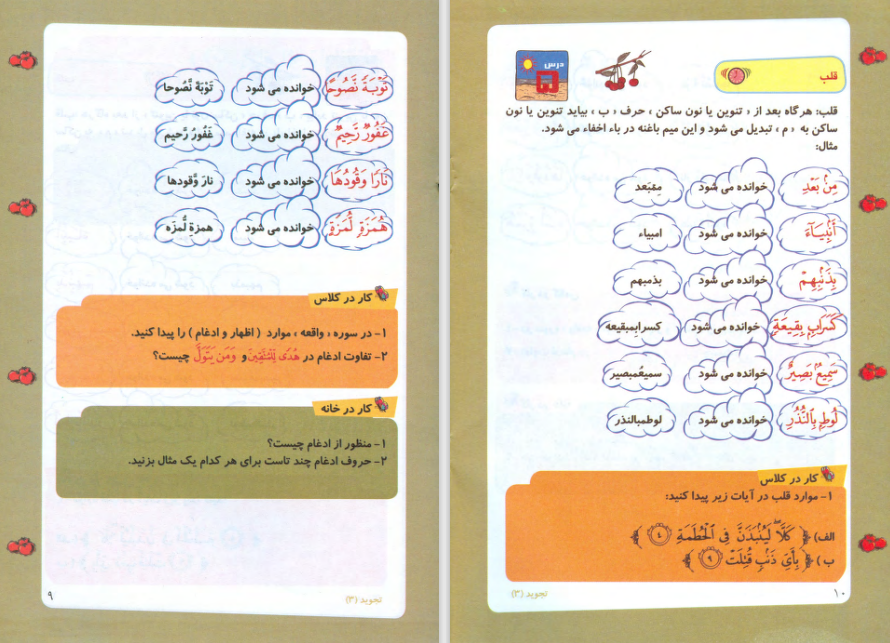 تَوْبَةً نَّصُوحًا خوانده می شود تَوْبَةَ نَّصُوحا
غَفُورٌ رَّحِيمٌ خوانده می شود غَفُورُ رَّحیم
نَارًا وَقُودُهَا خوانده می شود نارَ وَّقودها
هُمَزَةٍ لُّمَزَةٍ خوانده می شود همزةِ لُّمزَه
کار در کلاس
۱- در سوره « واقعه » موارد ( اظهار و ادغام ) را پیدا کنید.
۲- تفاوت ادغام در هُدًى لِّلْمُتَّقِينَ و وَمَن يَتَوَلَّ چیست؟
کار در خانه
۱- منظور از ادغام چیست؟
۲- حروف ادغام چند تاست برای هر کدام یک مثال بزنید.
تجوید (۳)
۹
درس
قلب
قلب: هرگاه بعد از « تنوین یا نون ساکن » حرف « ب » بیاید تنوین یا نون
ساکن به « م » تبدیل می شود و این میم باغنه در باء اخفاء می شود.
مثال:
مِنْ بَعْدِ خوانده می شود مِمْبَعد
أَنْبِيَاءَ خوانده می شود امبیاء
بِذَنْبِهِمْ خوانده می شود بذمبهم
كَسَرَابٍ بِقِيعَةٍ خوانده می شود کسرابمبقیعه
سَمِيعٌ بَصِيرٌ خوانده می شود سمیعُمبصیر
لُوطٍ بِالنُّذُرِ خوانده می شود لوطمبالنذر
کار در کلاس
۱- موارد قلب در آیات زیر پیدا کنید:
الف) ﴿ كَلَّا لَيُنْبَذَنَّ فِى الْحُطَمَةِ ٤ ﴾
ب) ﴿ بِأَىِّ ذَنْبٍ قُتِلَتْ ٩ ﴾
تجوید (۳)
۱۰